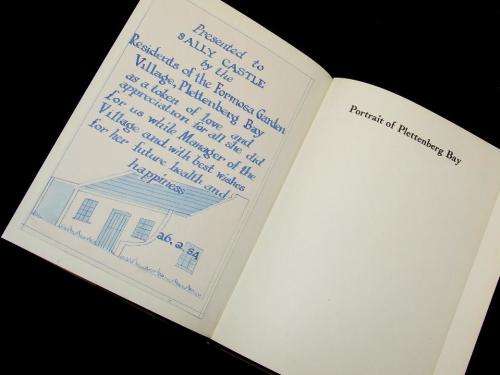 Presented to
SALLY CASTLE
by the
Residents of the Formosa Garden
Village, Plettenberg Bay
as a token of love and
appreciation for all she did
for us while Manager of the
Village and with best wishes
for her future health and
happiness
26.2.84
Portrait of Plettenberg Bay